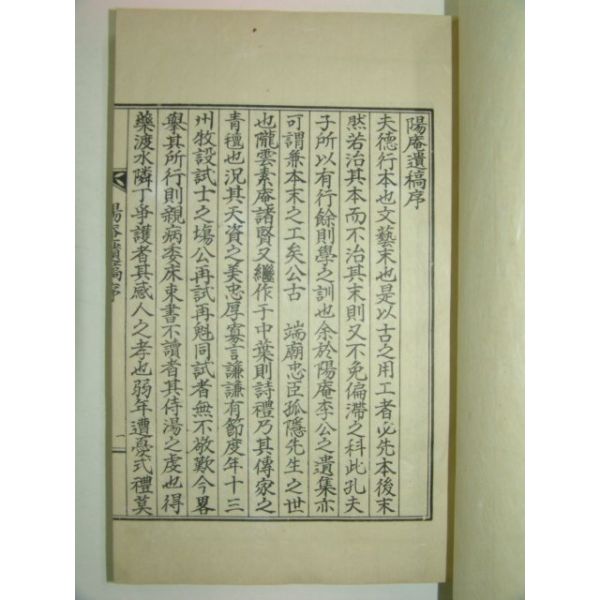 陽庵遺稿序
夫德行本也文藝末也是以古之用工者必先本後末
然若治其本而不治其末則又不免偏滯之科此孔夫
子所以有行餘則學之訓也余於陽庵李公之遺集亦
可謂兼本末之工矣公古 端廟忠臣孤隱先生之世
也隴雲素庵諸賢又繼作于中葉則詩禮乃其傳家之
青氊也況其天資之美忠厚寡言謙謙有節度年十三
州牧設試士之場公再試再魁同試者無不敬歎今畧
擧其所行則親病委床束書不讀者其侍湯之虔也得
藥渡水隣丁爭護者其感人之孝也弱年遭憂式禮莫
陽庵遺稿序
一